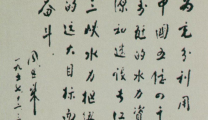 为充分利用
中国五亿四千
万瓩的水力资
源和建设长江
三峡水力枢纽
的远大目标而
奋斗
周恩来
一九五七、三、